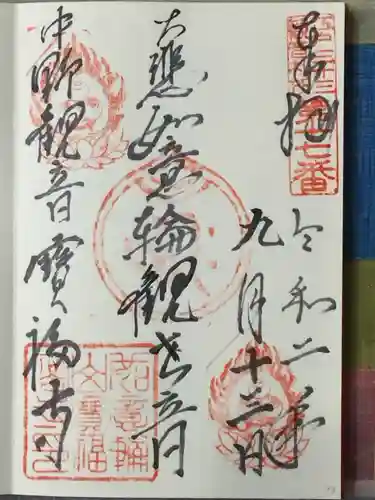 奉拝
第七番
令和二年
九月十三日
大悲如意輪観世音
中野観音寳福寺